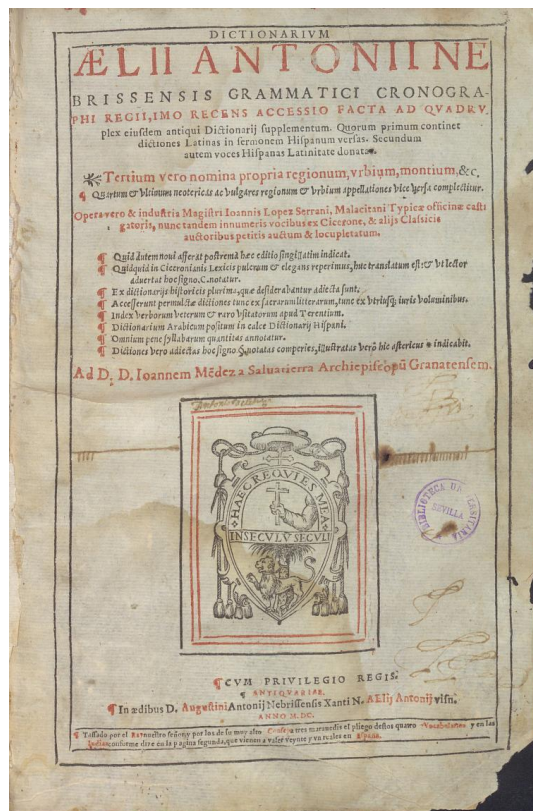 DICTIONARIVM
ÆLII ANTONII NE
BRISSENSIS GRAMMATICI CRONOGRA-
PHI REGII, IMO RECENS ACCESSIO FACTA AD QVADRV.
plex eiusdem antiqui Dictionarij supplementum. Quorum primum continet
dictiones Latinas in sermonem Hispanum versas. Secundum
autem voces Hispanas Latinitate donatas.
Tertium vero nomina propria regionum, vrbium, montium, &c.
¶ Quartum & vltimum neotericas ac vulgares regionum & vrbium appellationes vice versa complectitur.
Opera vero & industria Magistri Ioannis Lopez Serrani, Malacitani Typicæ officinæ casti
gatoris, nunc tandem innumeris vocibus ex Cicerone, & alijs Classicis
auctoribus petitis auctum & locupletatum.
¶ Quid autem noui afferat postrema hæc editio singillatim indicat.
¶ Quidquid in Ciceronianis Lexicis pulcrum & elegans reperimus, huc translatum est: & vt lector
aduertat hoc signo. C. notatur.
¶ Ex dictionarijs historicis plurima, quæ desiderabantur adiecta sunt.
¶ Accesserunt permultæ dictiones tunc ex sacrarum litterarum, tunc ex vtriusq; iuris voluminibus.
¶ Index verborum veterum & raro vsitatorum apud Terentium.
¶ Dictionarium Arabicum positum in calce Dictionarij Hispani.
¶ Omnium pene syllabarum quantitas annotatur.
¶ Dictiones vero adiectas hoc signo notatas comperies, illustratas verò hic astericus * indicabit.
Ad D. D. Ioannem Mẽdez a Saluatierra Archiepiscopũ Granatensem.
HAEC REQVIES MEA
IN SECVLV SECVLI
BIBLIOTECA UNIVERSITARIA
SEVILLA
¶ CVM PRIVILEGIO REGIS.
¶ ANTIQVARIAE.
¶ In ædibus D. Augustini Antonij Nebrissensis Xanti N. AElij Antonij
ANNO M. DC.
¶ Tassado por el Rey nuestro señor, y por los de su muy alto Consejo a tres marauedis el pliego destos quatro Vocabularios y en las
Indias conforme dize en la pagina segunda, que vienen a valer veynte y vn reales en España.